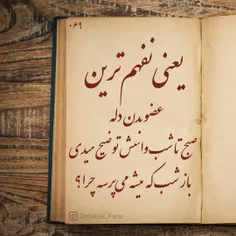 ۰۶۹
یعنی نفهم ترین
عضو بدن دله
صبح تا شب واسش توضیح میدی
باز شب که میشه می پرسه چرا؟